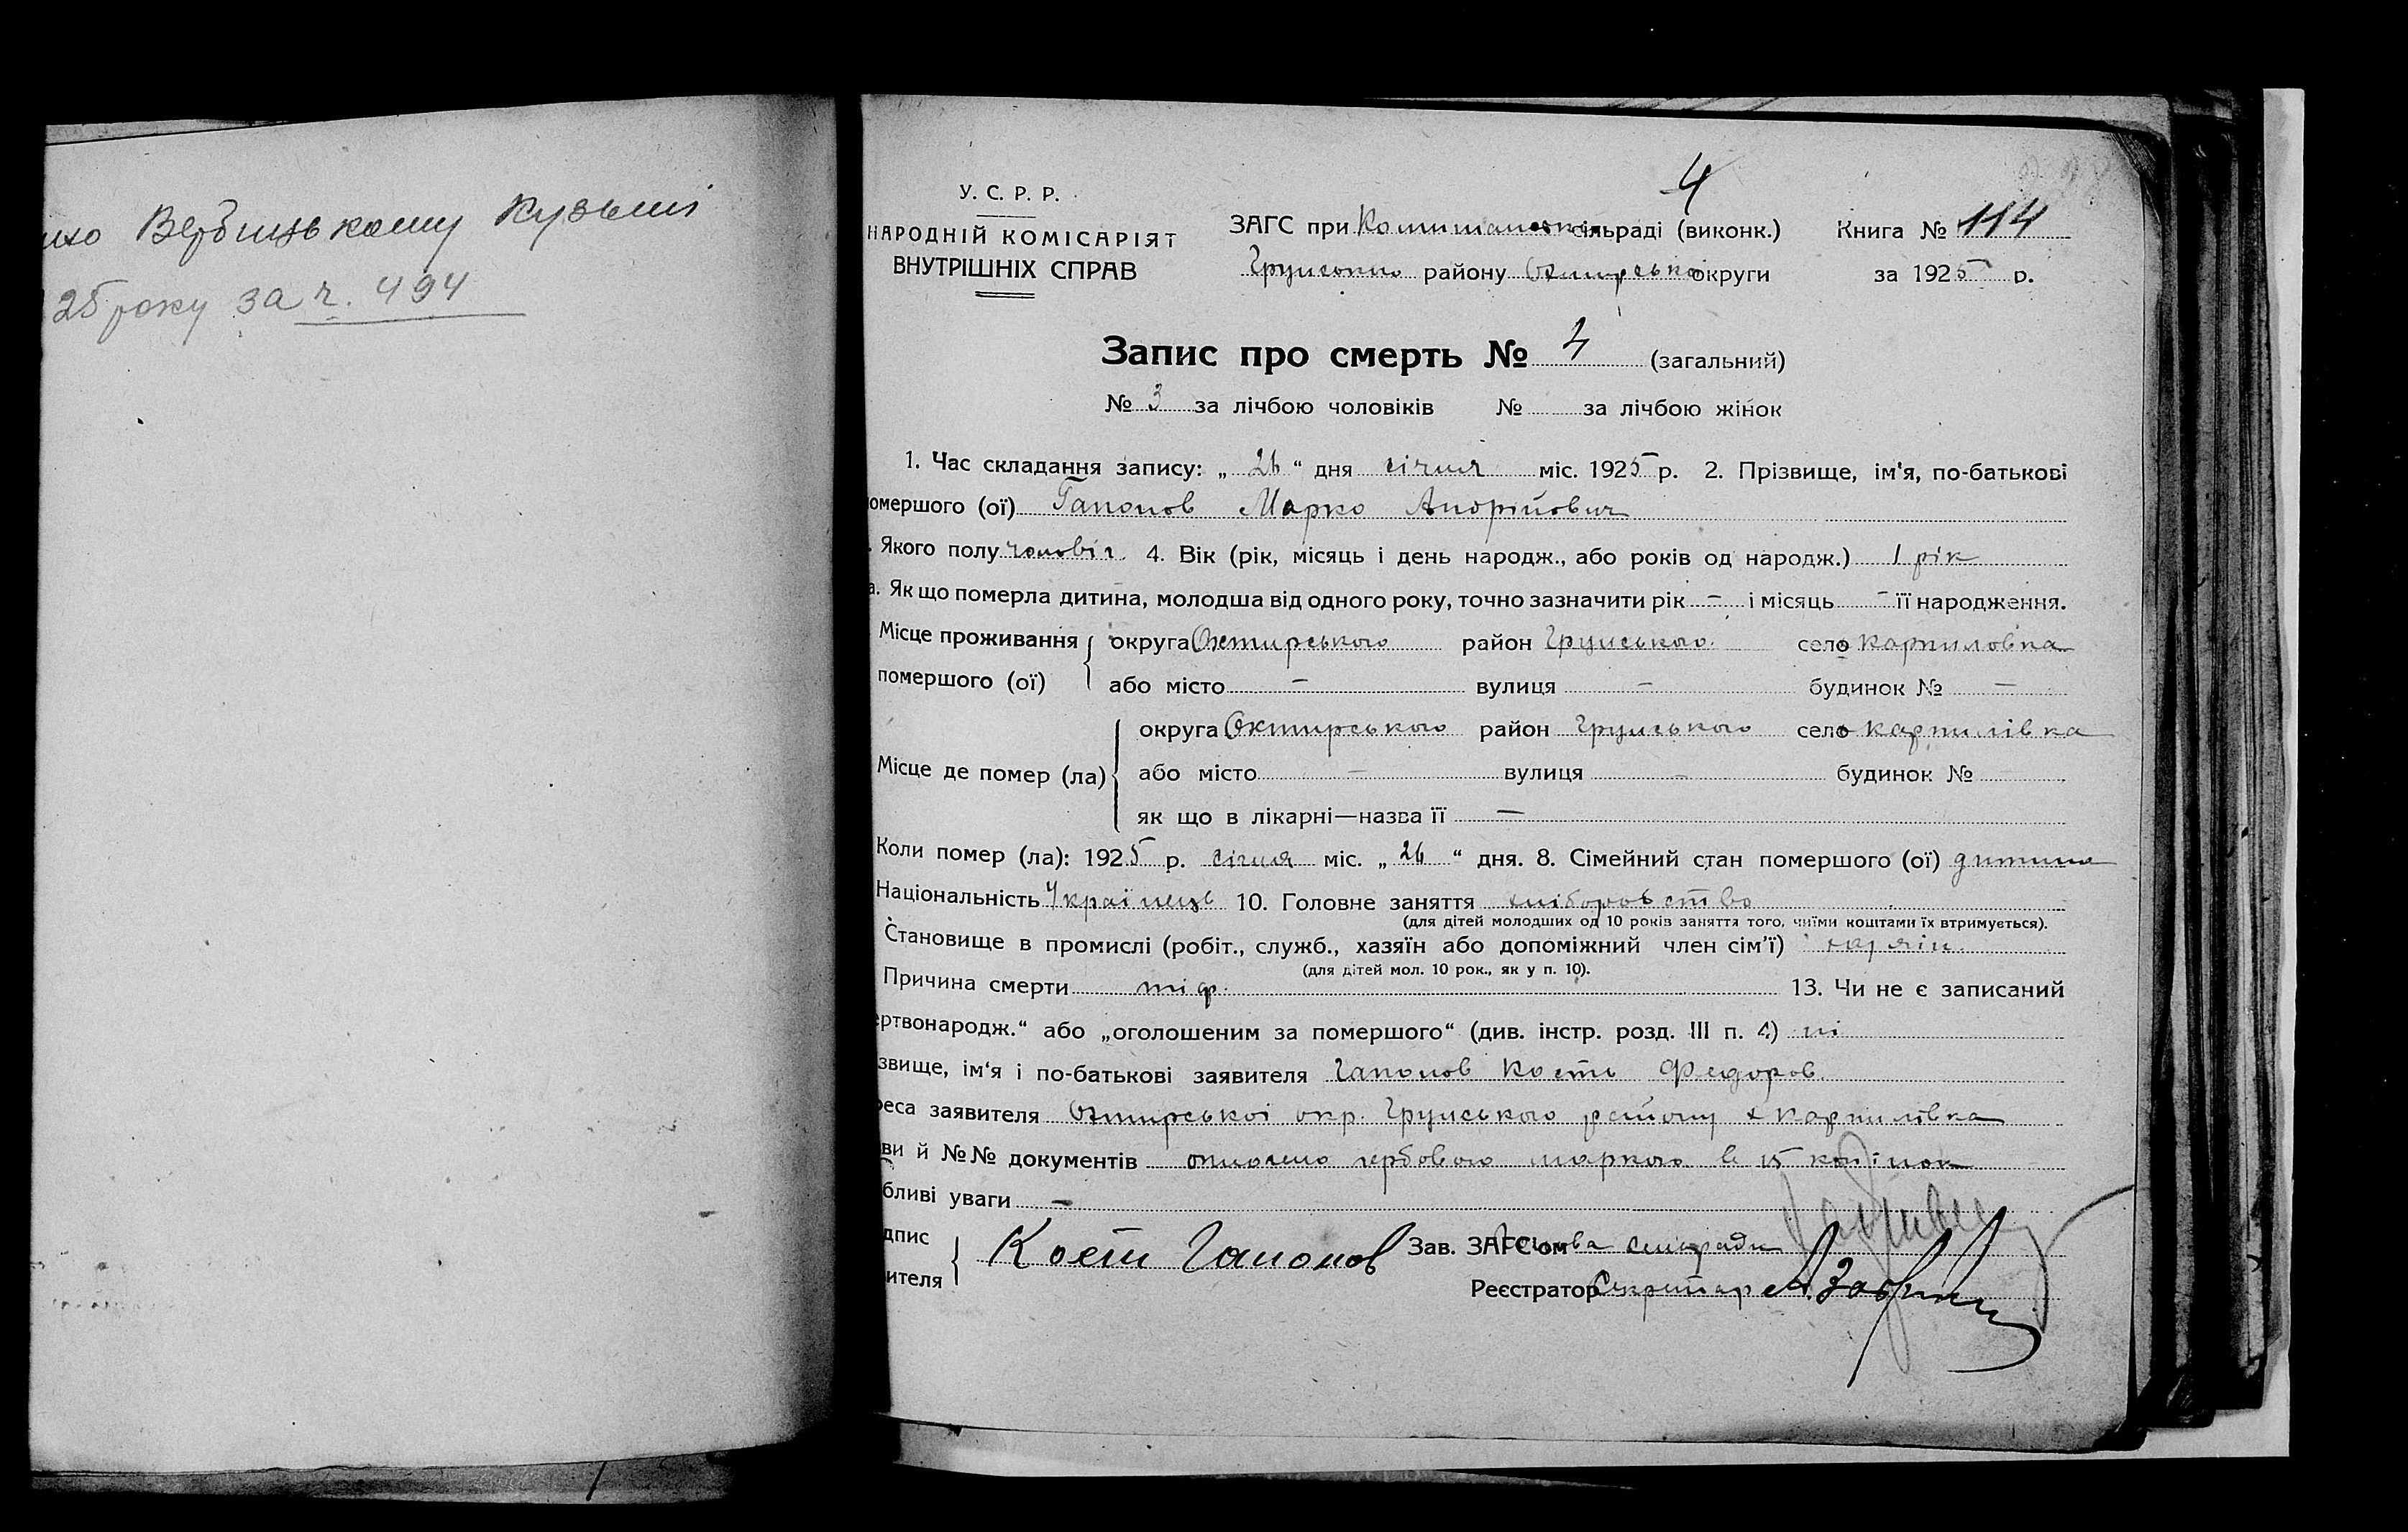 Вербицькому Кузьмі
25 року за ч. 494
4
У. С. Р. Р.
НАРОДНІЙ КОМІСАРІЯТ
ВНУТРІШНІХ СПРАВ
ЗАГС при сільраді (виконк.)
Грунського району Охтирської округи
Книга № 114
за 1925 р.
Запис про смерть № 4 (загальний)
№ 3 за лічбою чоловіків № за лічбою жінок
1. Час складання запису: „ 26 “ дня січня міс. 1925 р. 2. Прізвище, ім'я, по-батькові
омершого (ої) Гапонов Марко Андрійович
. Якого полу чоловіч. 4. Вік (рік, місяць і день народж., або років од народж.) 1 рік
а. Як що померла дитина, молодша від одного року, точно зазначити рік – і місяць – її народження.
Місце проживання округа Охтирського район Грунського село Карпиловка
помершого (ої) або місто – вулиця – будинок № –
округа Охтирського район Грунського село Карпилівка
Місце де помер (ла) або місто – вулиця – будинок №
як що в лікарні—назва її –
Коли помер (ла): 1925 р. січня міс. „ 26 “ дня. 8. Сімейний стан помершого (ої) дитина
Національність Українець 10. Головне заняття хліборобство
(для дітей молодших од 10 років заняття того, чиїми коштами їх втримується).
Становище в промислі (робіт., служб., хазяїн або допоміжний член сім'ї) хазяїн
(для дітей мол. 10 рок., як у п. 10).
Причина смерти тіф. 13. Чи не є записаний
ертвонародж.“ або „оголошеним за помершого“ (див. інстр. розд. III п. 4) ні
звище, ім'я і по-батькові заявителя Гапонов Кость Федоров.
реса заявителя Охтирської окр. Грунського району х Карпилівка
ви й №№ документів оплачено гербовою маркою в 15 копійок
бливі уваги –
дпис
ителя
Кост Гапонов
Зав. ЗАГС'ом Голова сільради
Реєстратор Секретар